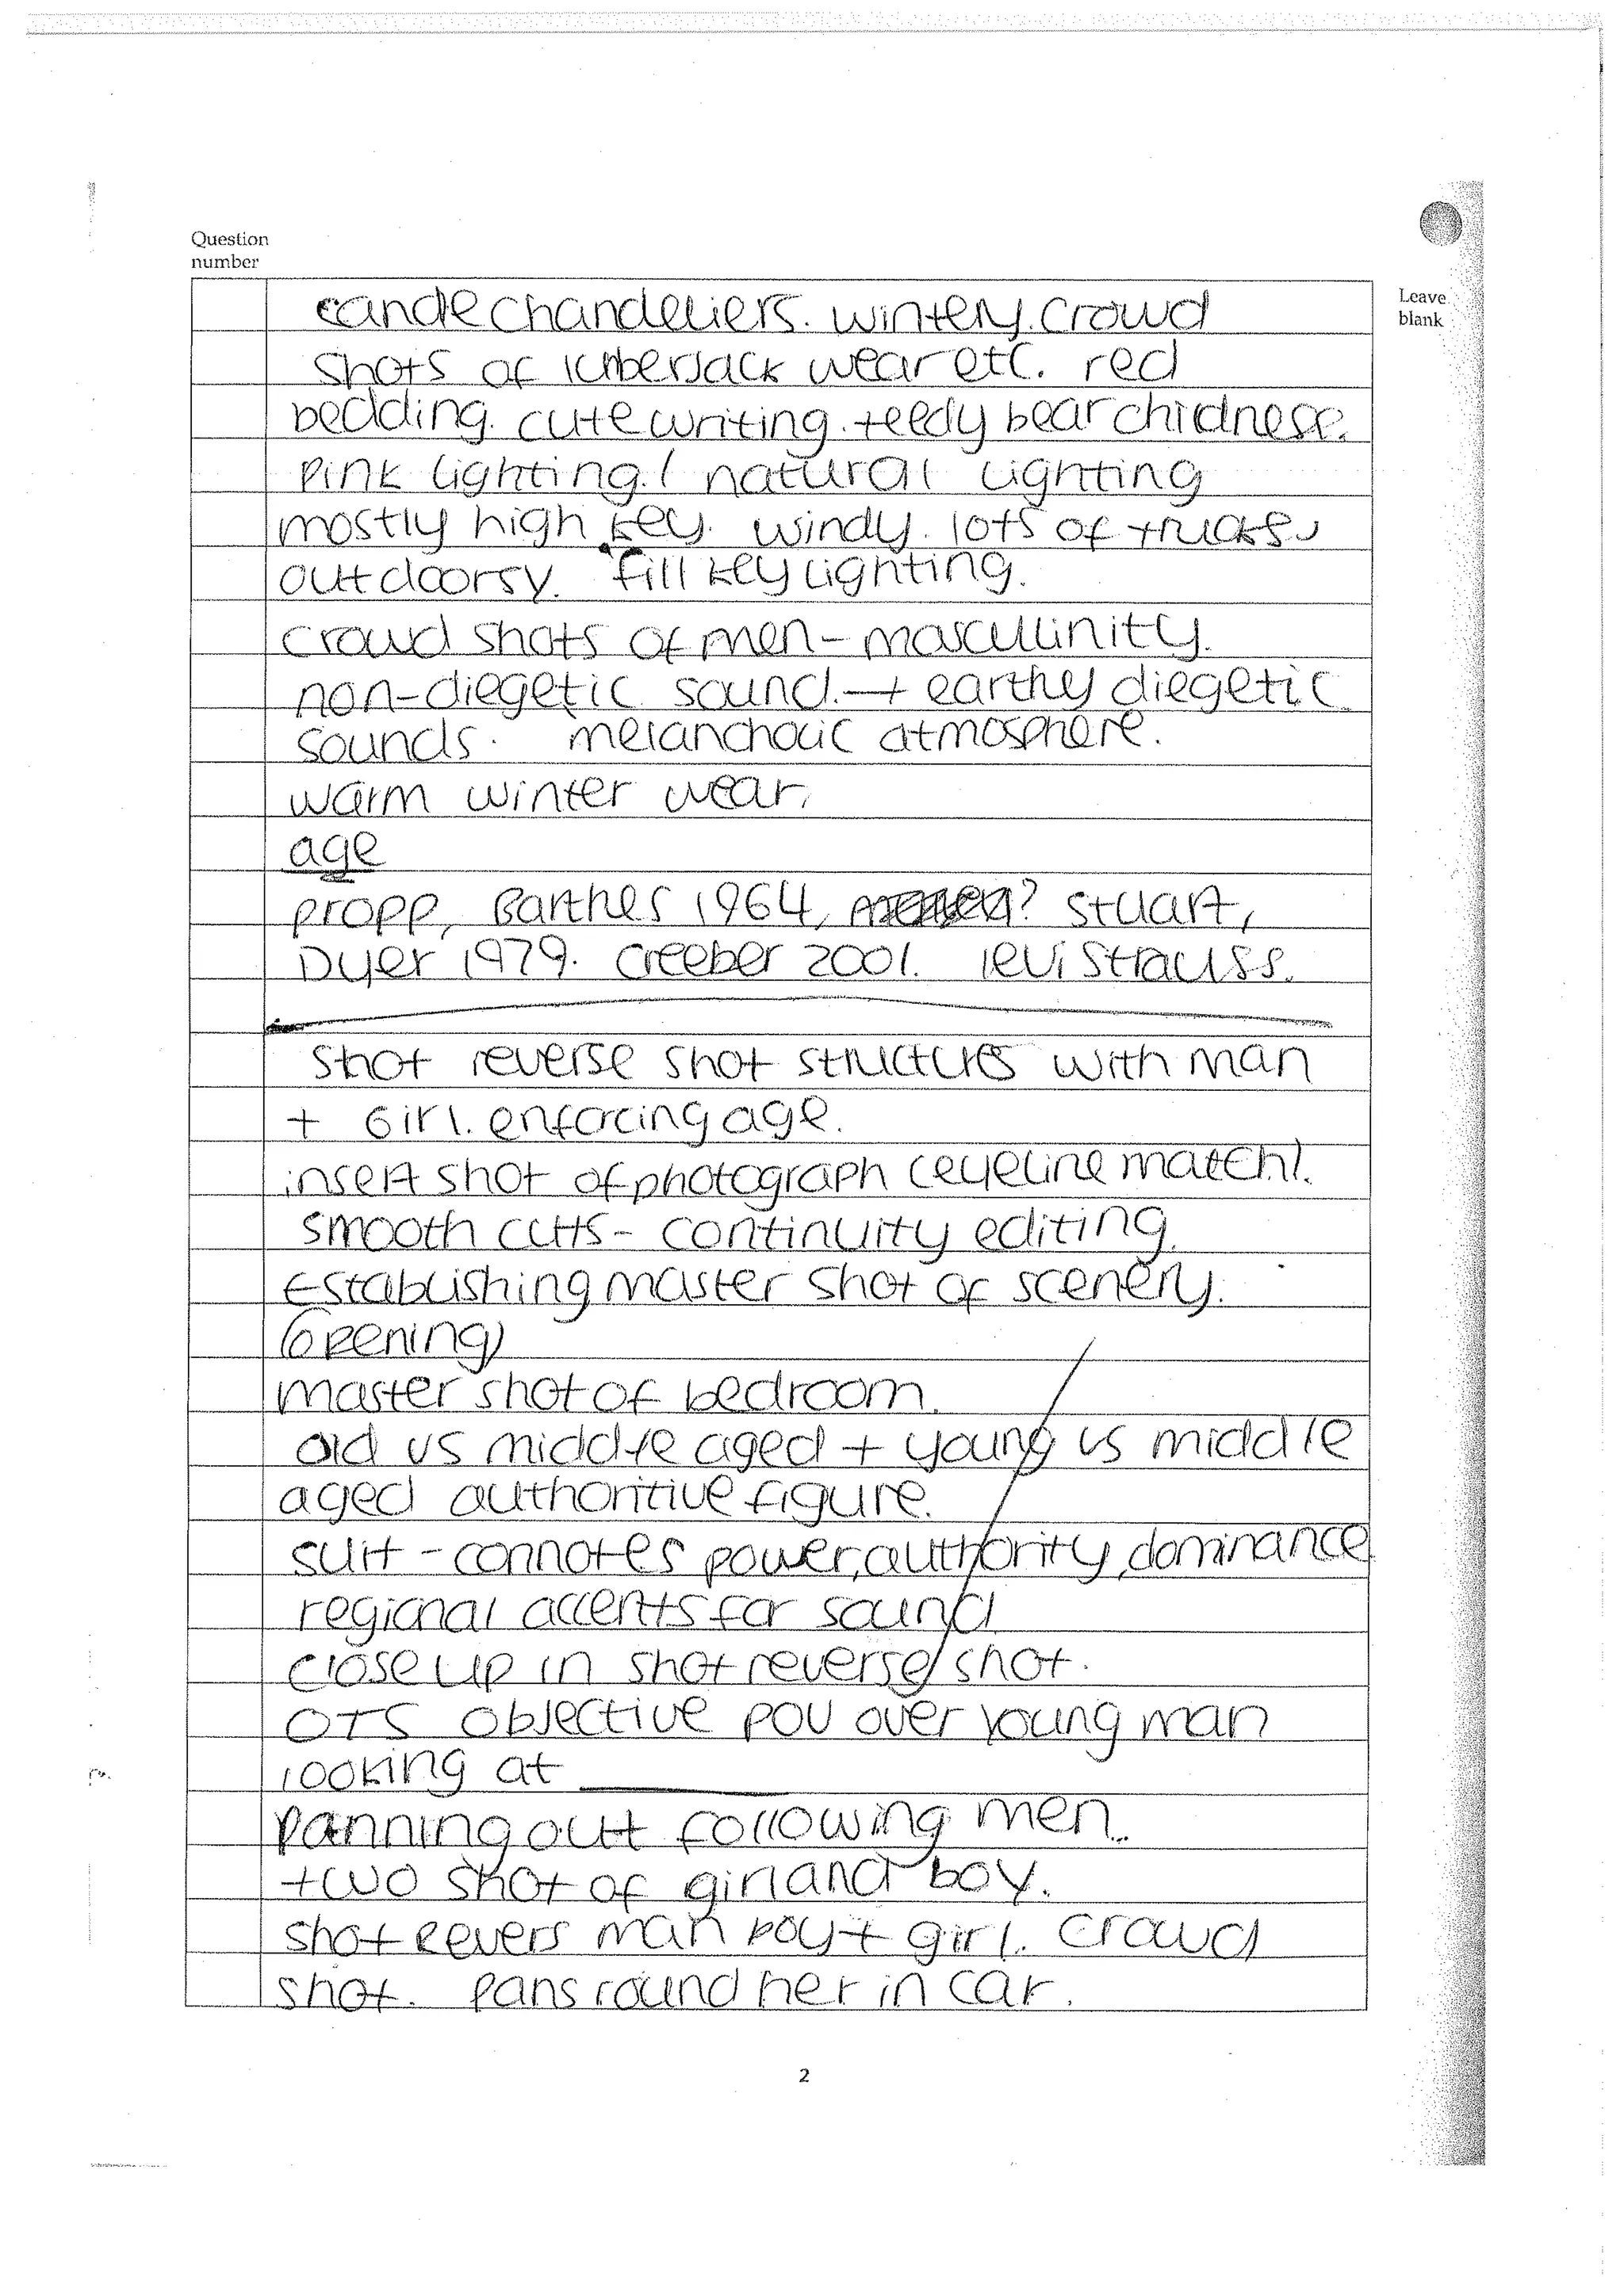 Question
number
Leave
blank
candle chandeliers. wintery. Crowd
shots of lumberjack wear etc. red
bedding. cute writing. teedy bear chidness.
Pink lighting. / natural lighting
mostly high key. windy. lots of trucks,
outdoorsy. fill key lighting.
crowd shots of men - mascullinity.
non-diegetic sound. → earthy diegetic
sounds. melancholic atmosphere.
warm winter wear.
age
propp, Barthes 1964, ? Stuart,
Dyer 1979. Creeber 2001. levi Strauss.
shot reverse shot structures with man
+ Girl. enforcing age.
insert shot of photograph (eyeline match).
smooth cuts - continuity editing.
Establishing master shot of scenery.
(opening)
master shot of bedroom.
old vs middle aged + young vs middle
aged authoritive figure.
suit - connotes power, authority, dominance
regional accents for sound
close up in shot reverse shot.
OTS objective POV over young man
looking at ______
Panning out following men.
two shot of girl and boy.
shot Revers man boy + girl. crowd
shot. Pans round her in car.
2